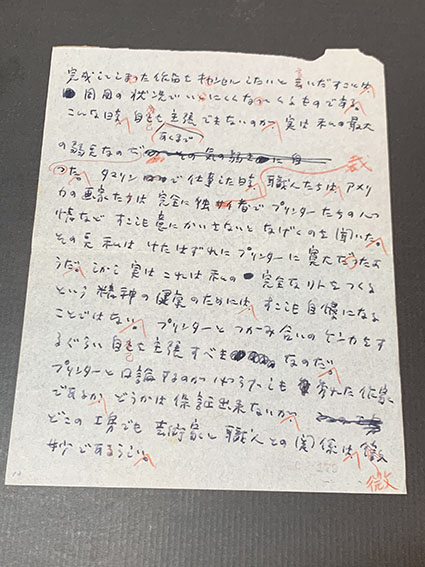 完成してしまった作品をキャンセルしたいと言いだすことは
周囲の状況でいいにくくなってくるものである。
こんな時、自己を主張できないのが、実は私の最大
あくまで
の弱点なのだ
裁
った。タマリンドで仕事した時、職人たちは、アメリ
カの画家たちは完全に独裁者でプリンターたちの心
情などすこしも意にかいさないとなげくのを聞いた。
その点私はけたはずれにプリンターに寛大だったよ
うだ。しかし実はこれは私の 完全なリトをつくる
という精神の健康のためには、すこしも自慢になる
ことではない。プリンターとつかみ合いのケンカをす
るぐらい自己を主張すべき なのだ。
プリンターと口論するのが、かならずしも 作家
であるか、どうかは保証出来ないが、
どこの工房でも芸術家と職人との関係は、微
妙であるらしい。
微